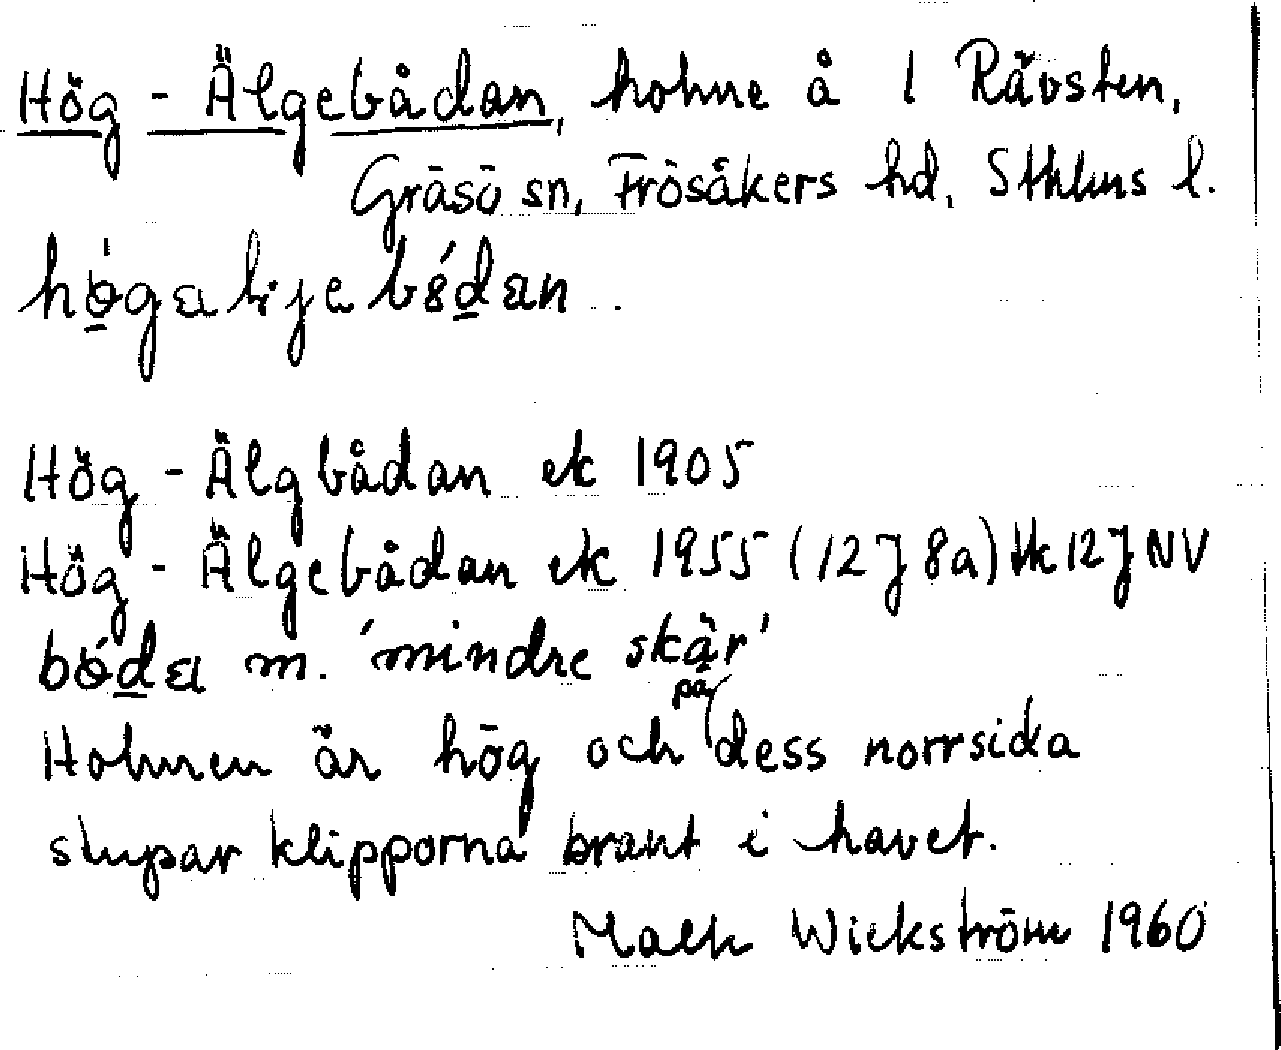 Hög - Älgebådan, holme å 1 Rävsten,
Gräsö sn, Frösåkers hd, Sthlms l.
Hög - Älgbådan ek 1905
Hög - Älgebådan ek 1955 (12J 8a) tk 12J NV
m. 'mindre skär'
Holmen är hög och på dess norrsida
stupar klipporna brant i havet.
Wickström 1960